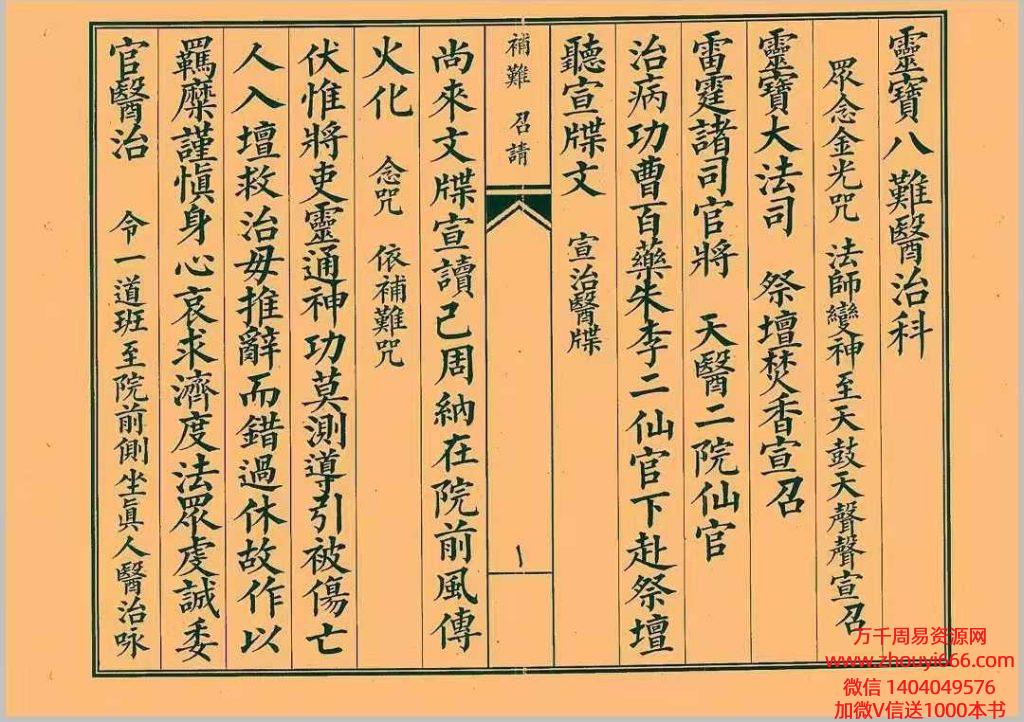 靈寶八難醫治科
眾念金光咒 法師變神至天鼓天聲聲宣召
靈寶大法司 祭壇焚香宣召
雷霆諸司官將 天醫二院仙官
治病功曹百藥朱李二仙官下赴祭壇
聽宣牒文 宣治醫牒
補難 召請
尚來文牒宣讀已周納在院前風傳
火化 念咒 依補難咒
伏惟將吏靈通神功莫測導引被傷亡
人入壇救治毋推辭而錯過休故作以
羈縻謹慎身心哀求濟度法眾虔誠委
官醫治 令一道班至院前側坐眞人醫治咏
万千周易资源网
www.zhouyi666.com
微信 1404049576
加微V信送1000本书